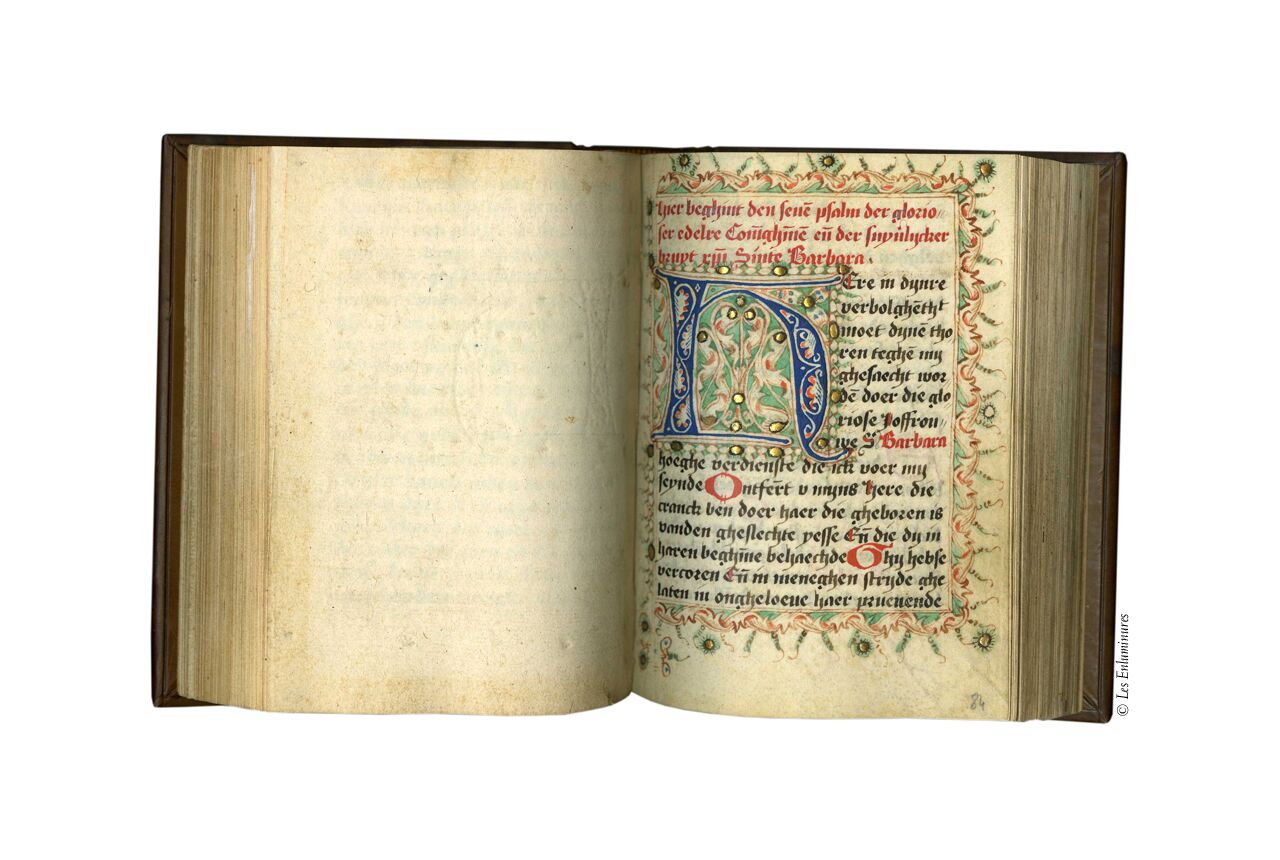 hier beghint den seuē psalm der glorio
ser edelre Conīghīnē eñ der suyuℓycker
bruyt xp̄i Sinte Barbara
HEre in dynre
verbolghēthᵗ
moet dynē tho
ren teghē my
ghesaecht wor
dē doer die glo
riose Joffrou
we Sᵉ Barbara
hoeghe verdienste die ick voer my
seynde Ontfērt v myns here die
cranck ben doer haer die gheboren is
vanden gheslechte yesse Eñ die dy in
haren beghīne behaechde Ghy hebse
vercoren Eñ in meneghen stryde ghe
laten in ongheloeue haer prueuende
84
© Les Enluminures